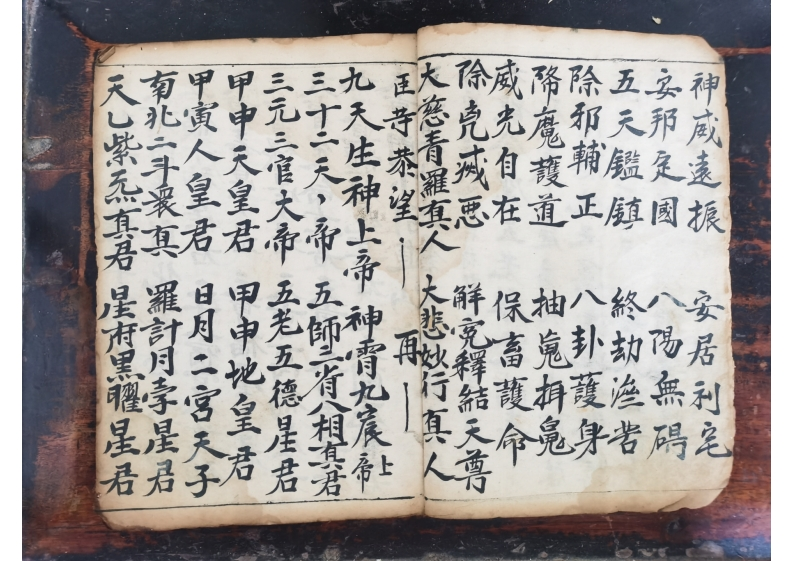 神威遠振 安居利宅
安邦定國 八陽無碍
五天鑑鎮 終劫濟苦
除邪輔正 八卦護身
降魔護道 抽䰟揖䰟
威光自在 保畜護命
除凶滅惡 解寃釋結天尊
大慈青羅真人 大悲妙行真人
臣等恭望 再
九天生神上帝 神霄九宸上帝
三十二天、帝 五師三省八相真君
三元三官大帝 五老五德星君
甲申天皇君 甲申地皇君
甲寅人皇君 日月二宮天子
南北二斗衆真 羅計月孛星君
天乙紫炁真君 星府黑曜星君